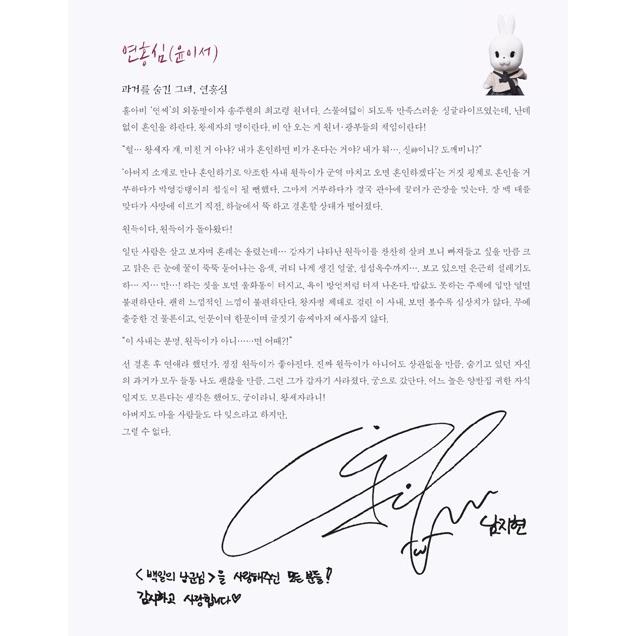 연홍심(윤이서)
과거를 숨긴 그녀, 연홍심
홀아비 ‘연씨’의 외동딸이자 송주현의 최고령 원녀다. 스물여덟이 되도록 만족스러운 싱글라이프였는데, 난데
없이 혼인을 하란다. 왕세자의 명이란다. 비 안 오는 게 원녀·광부들의 책임이란다!
“헐… 왕세자 걔, 미친 거 아냐? 내가 혼인하면 비가 온다는 거야? 내가 뭐…, 신神이니? 도깨비니?”
‘아버지 소개로 만나 혼인하기로 약조한 사내 원득이가 군역 마치고 오면 혼인하겠다’는 거짓 핑계로 혼인을 거
부하다가 박영감탱이의 첩실이 될 뻔했다. 그마저 거부하다가 결국 관아에 끌려가 곤장을 맞는다. 장 백 대를
맞다가 사망에 이르기 직전, 하늘에서 뚝 하고 결혼할 상대가 떨어졌다.
원득이다. 원득이가 돌아왔다!
일단 사람은 살고 보자며 혼례는 올렸는데… 갑자기 나타난 원득이를 찬찬히 살펴 보니 빠져들고 싶을 만큼 크
고 맑은 큰 눈에 꿀이 뚝뚝 묻어나는 음색, 귀티 나게 생긴 얼굴, 섬섬옥수까지…. 보고 있으면 은근히 설레기도
하… 지… 만…! 하는 짓을 보면 울화통이 터지고, 욕이 방언처럼 터져 나온다. 밥값도 못하는 주제에 입만 열면
불편하단다. 괜히 느낌적인 느낌이 불편하단다. 왕자병 제대로 걸린 이 사내, 보면 볼수록 심상치가 않다. 무예
출중한 건 물론이고, 언문이며 한문이며 글짓기 솜씨마저 예사롭지 않다.
“이 사내는 분명, 원득이가 아니……면 어때?!”
선 결혼 후 연애라 했던가. 점점 원득이가 좋아진다. 진짜 원득이가 아니어도 상관없을 만큼. 숨기고 있던 자신
의 과거가 모두 들통 나도 괜찮을 만큼. 그런 그가 갑자기 사라졌다. 궁으로 갔단다. 어느 높은 양반집 귀한 자식
일지도 모른다는 생각은 했어도, 궁이라니. 왕세자라니!
아버지도 마을 사람들도 다 잊으라고 하지만,
그럴 수 없다.
남지현
<백일의 낭군님>을 사랑해주신 모든 분들!
감사하고 사랑합니다♡